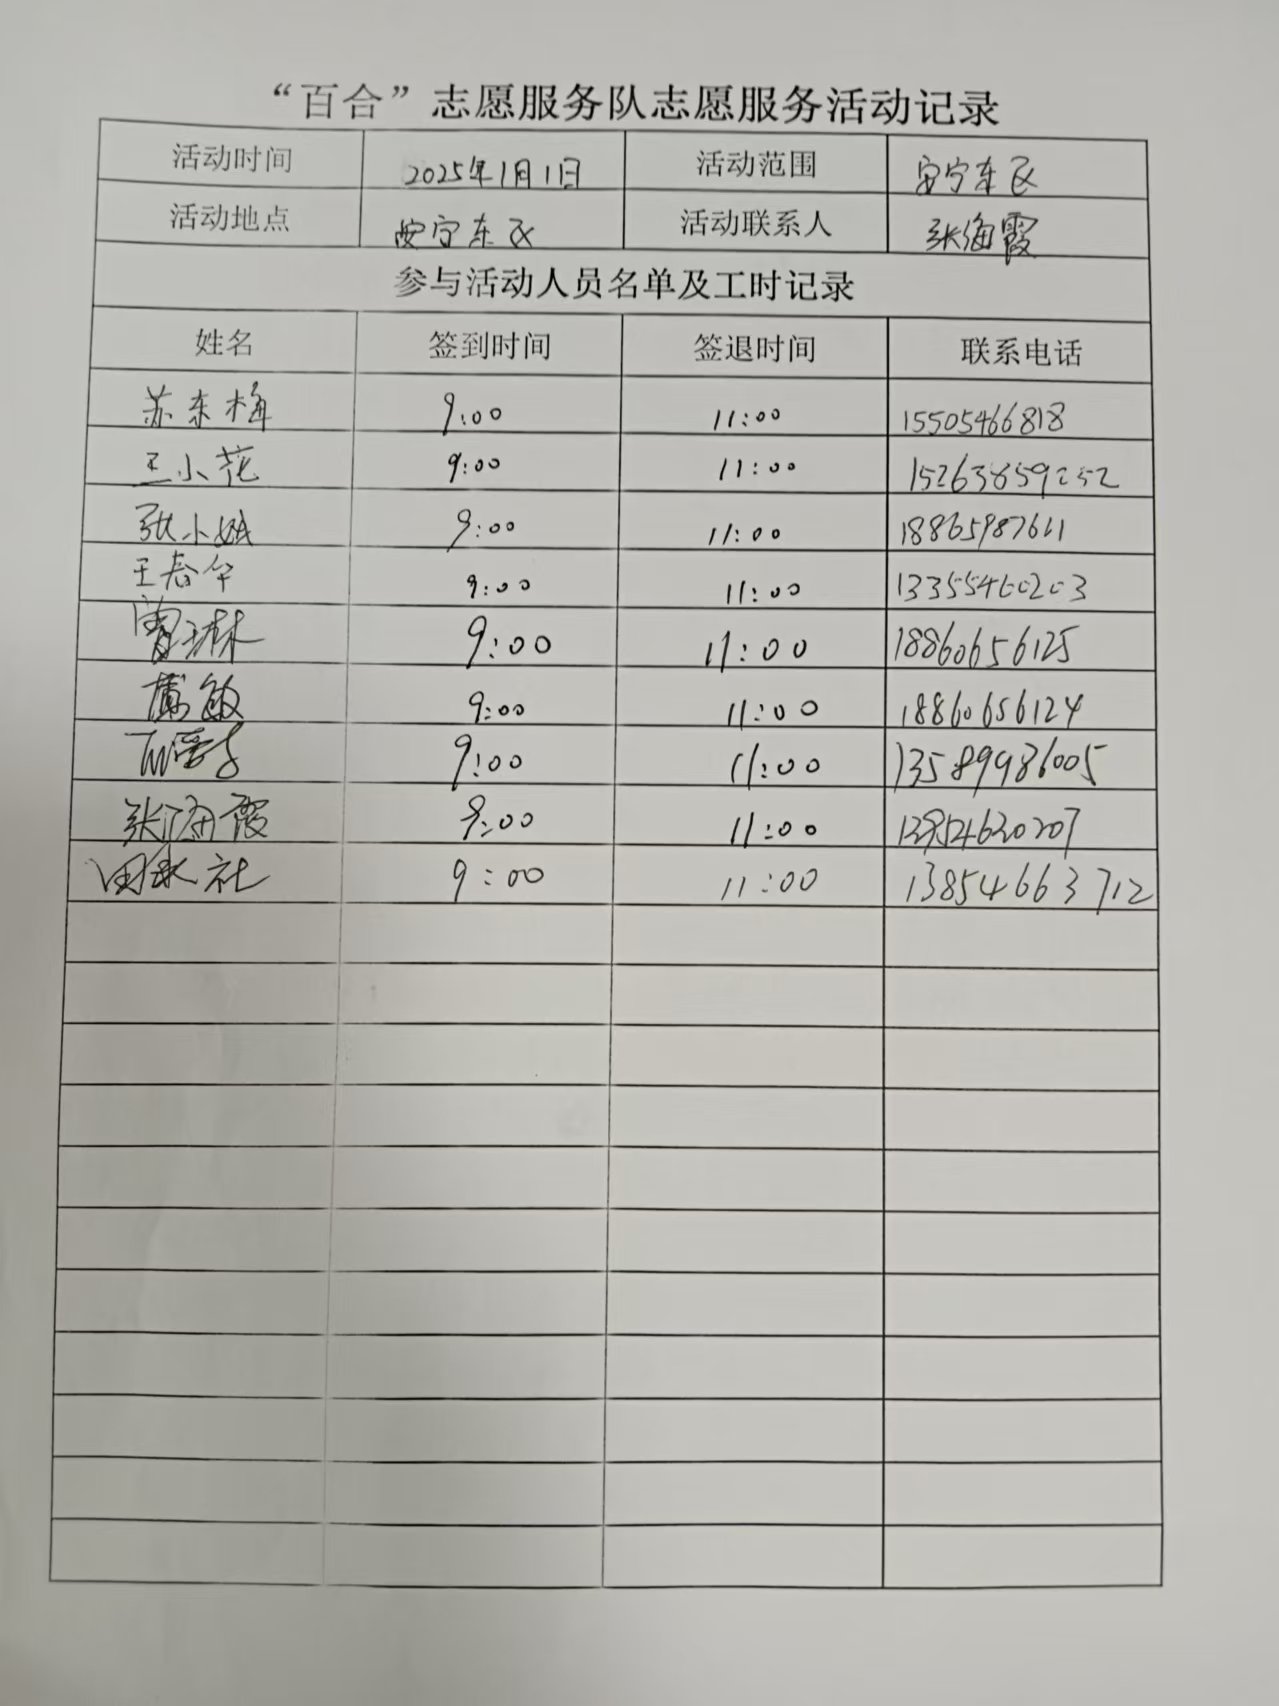 “百合”志愿服务队志愿服务活动记录
活动时间 2025年1月1日 活动范围 安宁东区
活动地点 安宁东区 活动联系人 张海霞
参与活动人员名单及工时记录
姓名 签到时间 签退时间 联系电话
苏东梅 9:00 11:00 15505466818
王小花 9:00 11:00 15263859252
张小娥 9:00 11:00 18865987611
王春华 9:00 11:00 13355460203
曾琳 9:00 11:00 18860656125
敏 9:00 11:00 18860656124
9:00 11:00 13589986005
张海霞 9:00 11:00 13954630207
田永社 9:00 11:00 13854663712